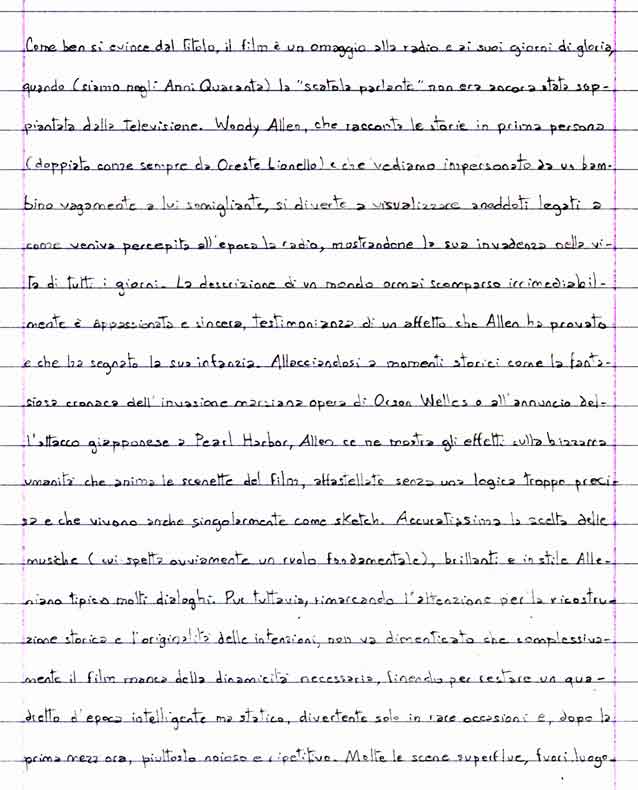 Come ben si evince dal titolo, il film è un omaggio alla radio e ai suoi giorni di gloria,
quando (siamo negli Anni Quaranta) la "scatola parlante" non era ancora stata sop-
piantata dalla televisione. Woody Allen, che racconta le storie in prima persona
(doppiato come sempre da Oreste Lionello) e che vediamo impersonato da un bam-
bino vagamente a lui somigliante, si diverte a visualizzare aneddoti legati a
come veniva percepita all'epoca la radio, mostrandone la sua invadenza nella vi-
ta di tutti i giorni. La descrizione di un mondo ormai scomparso irrimediabil-
mente è appassionata e sincera, testimonianza di un affetto che Allen ha provato
e che ha segnato la sua infanzia. Allacciandosi a momenti storici come la fanta-
siosa cronaca dell'invasione marziana opera di Orson Welles o all'annuncio del-
l'attacco giapponese a Pearl Harbor, Allen ce ne mostra gli effetti sulla bizzarra
umanità che anima le scenette del film, affastellate senza una logica troppo preci-
sa e che vivono anche singolarmente come sketch. Accuratissima la scelta delle
musiche (cui spetta ovviamente un ruolo fondamentale), brillanti e in stile Alle-
niano tipico molti dialoghi. Pur tuttavia, rimarcando l'attenzione per la ricostru-
zione storica e l'originalità delle intenzioni, non va dimenticato che complessiva-
mente il film manca della dinamicità necessaria, finendo per restare un qua-
dretto d'epoca intelligente ma statico, divertente solo in rare occasioni e, dopo la
prima mezz'ora, piuttosto noioso e ripetitivo. Molte le scene superflue, fuori luogo.